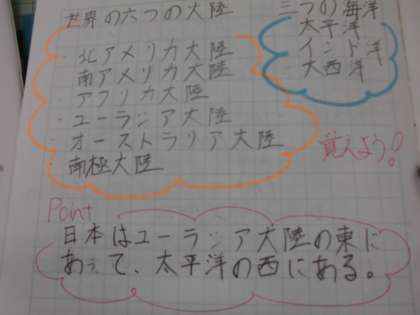 世界の六つの大陸
・北アメリカ大陸
・南アメリカ大陸
・アフリカ大陸
・ユーラシア大陸
・オーストラリア大陸
・南極大陸
三つの海洋
太平洋
インド洋
大西洋
覚えよう!
Point
日本はユーラシア大陸の東に
あって、太平洋の西にある。